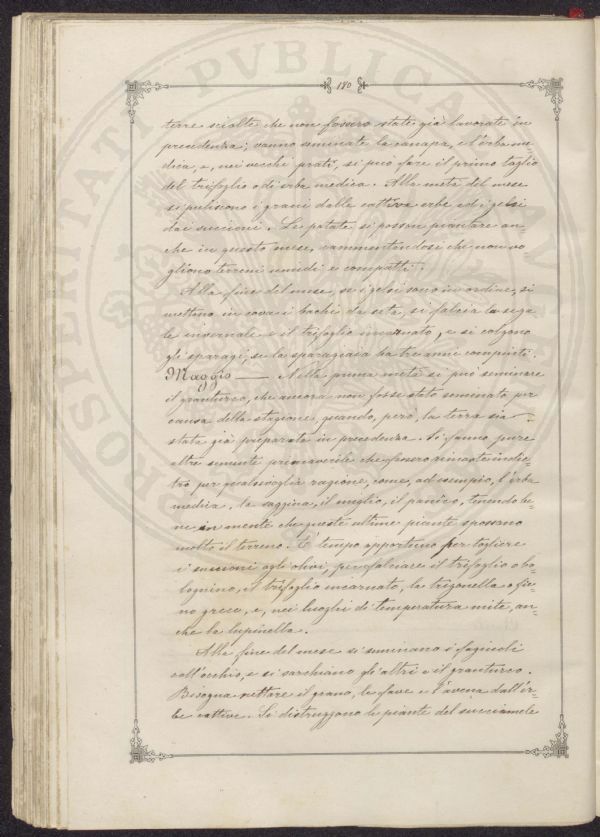 180
terre sciolte che non fossero state già lavorate in
precedenza; vanno seminate la canapa, e l'erba me-
dica, e, nei vecchi prati, si può fare il primo taglio
del trifoglio o di erba medica. Alla metà del mese
si puliscono i grani dalle cattive erbe ed i gelsi
dai succioni. Le patate si posson piantare an-
che in questo mese, rammentandosi che non vo
gliono terreni umidi e compatti.
Alla fine del mese, se i gelsi sono in ordine, si
mettono in cova i bachi da seta, si falcia la sega
le invernale e il trifoglio incarnato, e si colgono
gli sparagi, se la sparagiaia ha tre anni compiuti.
Maggio — Nella prima metà si può seminare
il granturco, che ancora non fosse stato seminato per
causa della stagione, quando, però, la terra sia
stata già preparata in precedenza. Si fanno pure
altre sementi primaverili che fossero rimaste indie-
tro per qualsivoglia ragione, come, ad esempio, l'erba
medica, la saggina, il miglio, il panìco, tenendo be-
ne in mente che queste ultime piante spossano
molto il terreno. È tempo opportuno per togliere
i succioni agli olivi, per falciare il trifoglio o bo-
lognino, il trifoglio incarnato, la trigonella o fie-
no greco, e, nei luoghi di temperatura mite, an-
che la lupinella.
Alla fine del mese si seminano i fagiuoli
coll'occhio, e si sarchiano gli altri e il granturco.
Bisogna nettare il grano, le fave e l'avena dall'er-
be cattive. Si distruggono le piante del succiamele
PROSPERITATI PVBLICAE AVGENDAE